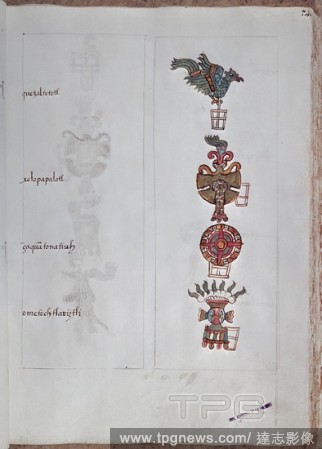 quetzaltototl
xolopapalotl
çaquã tonatiuh
ometochtlaviztli
TPG
www.tpgnews.com / 達志影像